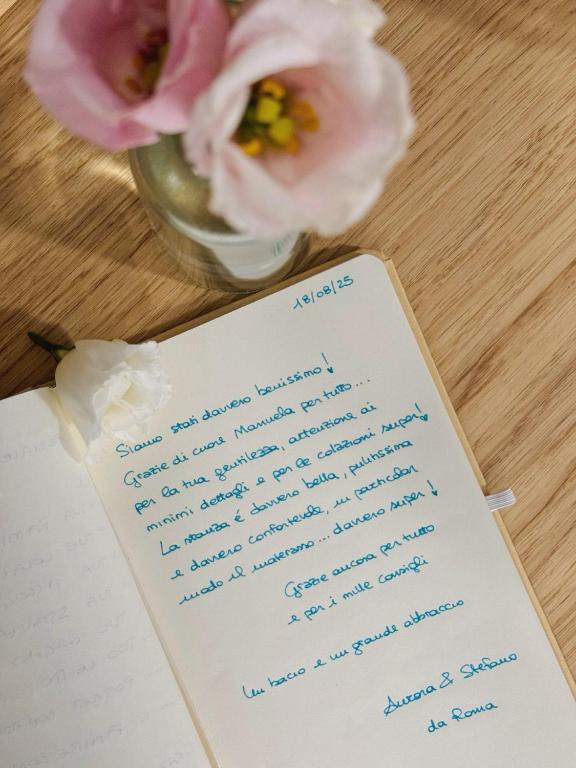 18/08/25
Siamo stati davvero benissimo!
Grazie di cuore Manuela per tutto...
per la tua gentilezza, attenzione ai
minimi dettagli e per le colazioni super!
La stanza é davvero bella, pulitissima
e davvero confortevole, in particolar
modo il materasso... davvero super!
Grazie ancora per tutto
e per i mille consigli
Un bacio e un grande abbraccio
Aurora & Stefano
da Roma